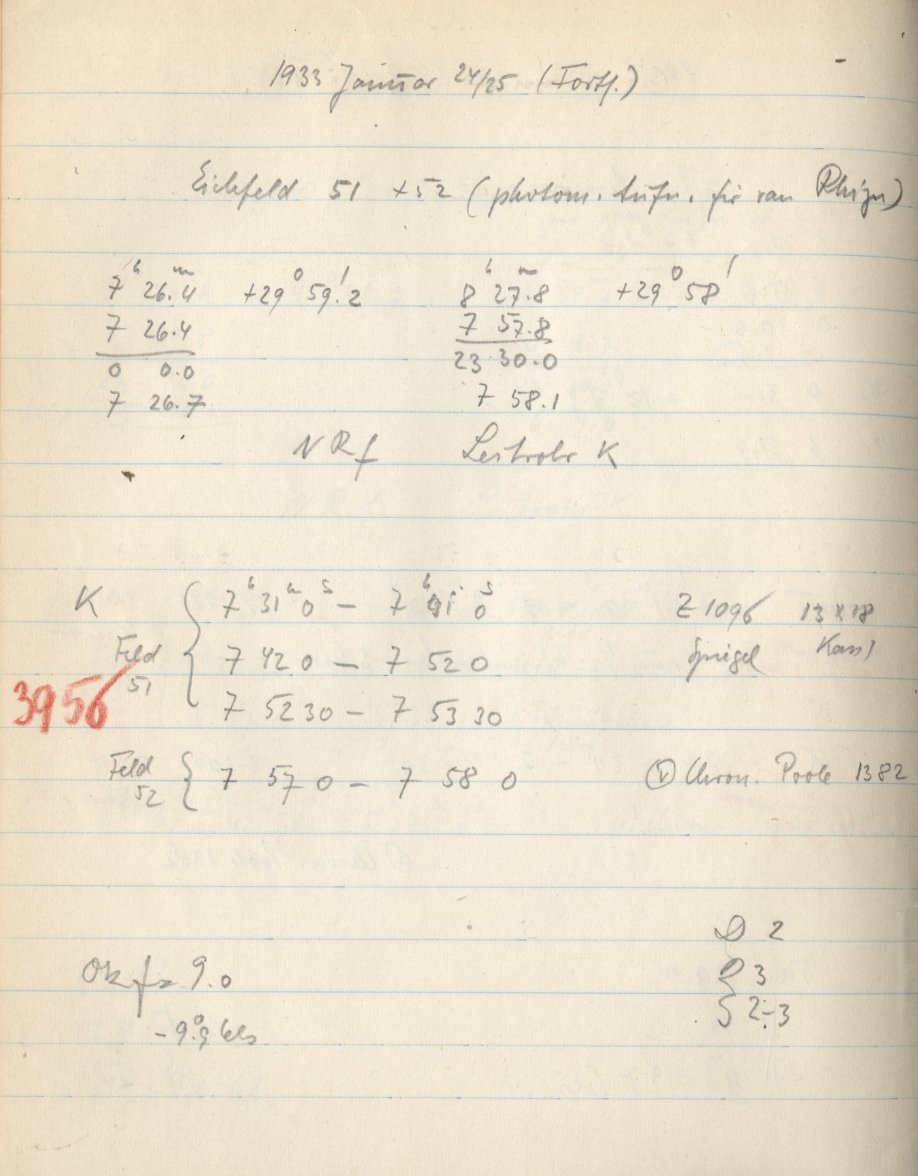 1933 Januar 24/25 (Fortf.)
Eichfeld 51 + 52 (photom. Aufn. für van Rhijn)
7h 26.m4 +29° 59!2 8h 27.m8 +29° 58'
7 26.4 7 57.8
0 0.0 23 30.0
7 26.7 7 58.1
NRf Leitrohr K
K 7h 31m 0s – 7h 41 0s Z 1096 13 x 18
Feld 51 7 42 0 – 7 52 0 Spiegel Kass
3956 7 52 30 – 7 53 30
Feld 52 7 57 0 – 7 58 0 Chron. Poole 1382
D 2
Ok f = 9.0 3
-9°.9 Cels 2-3